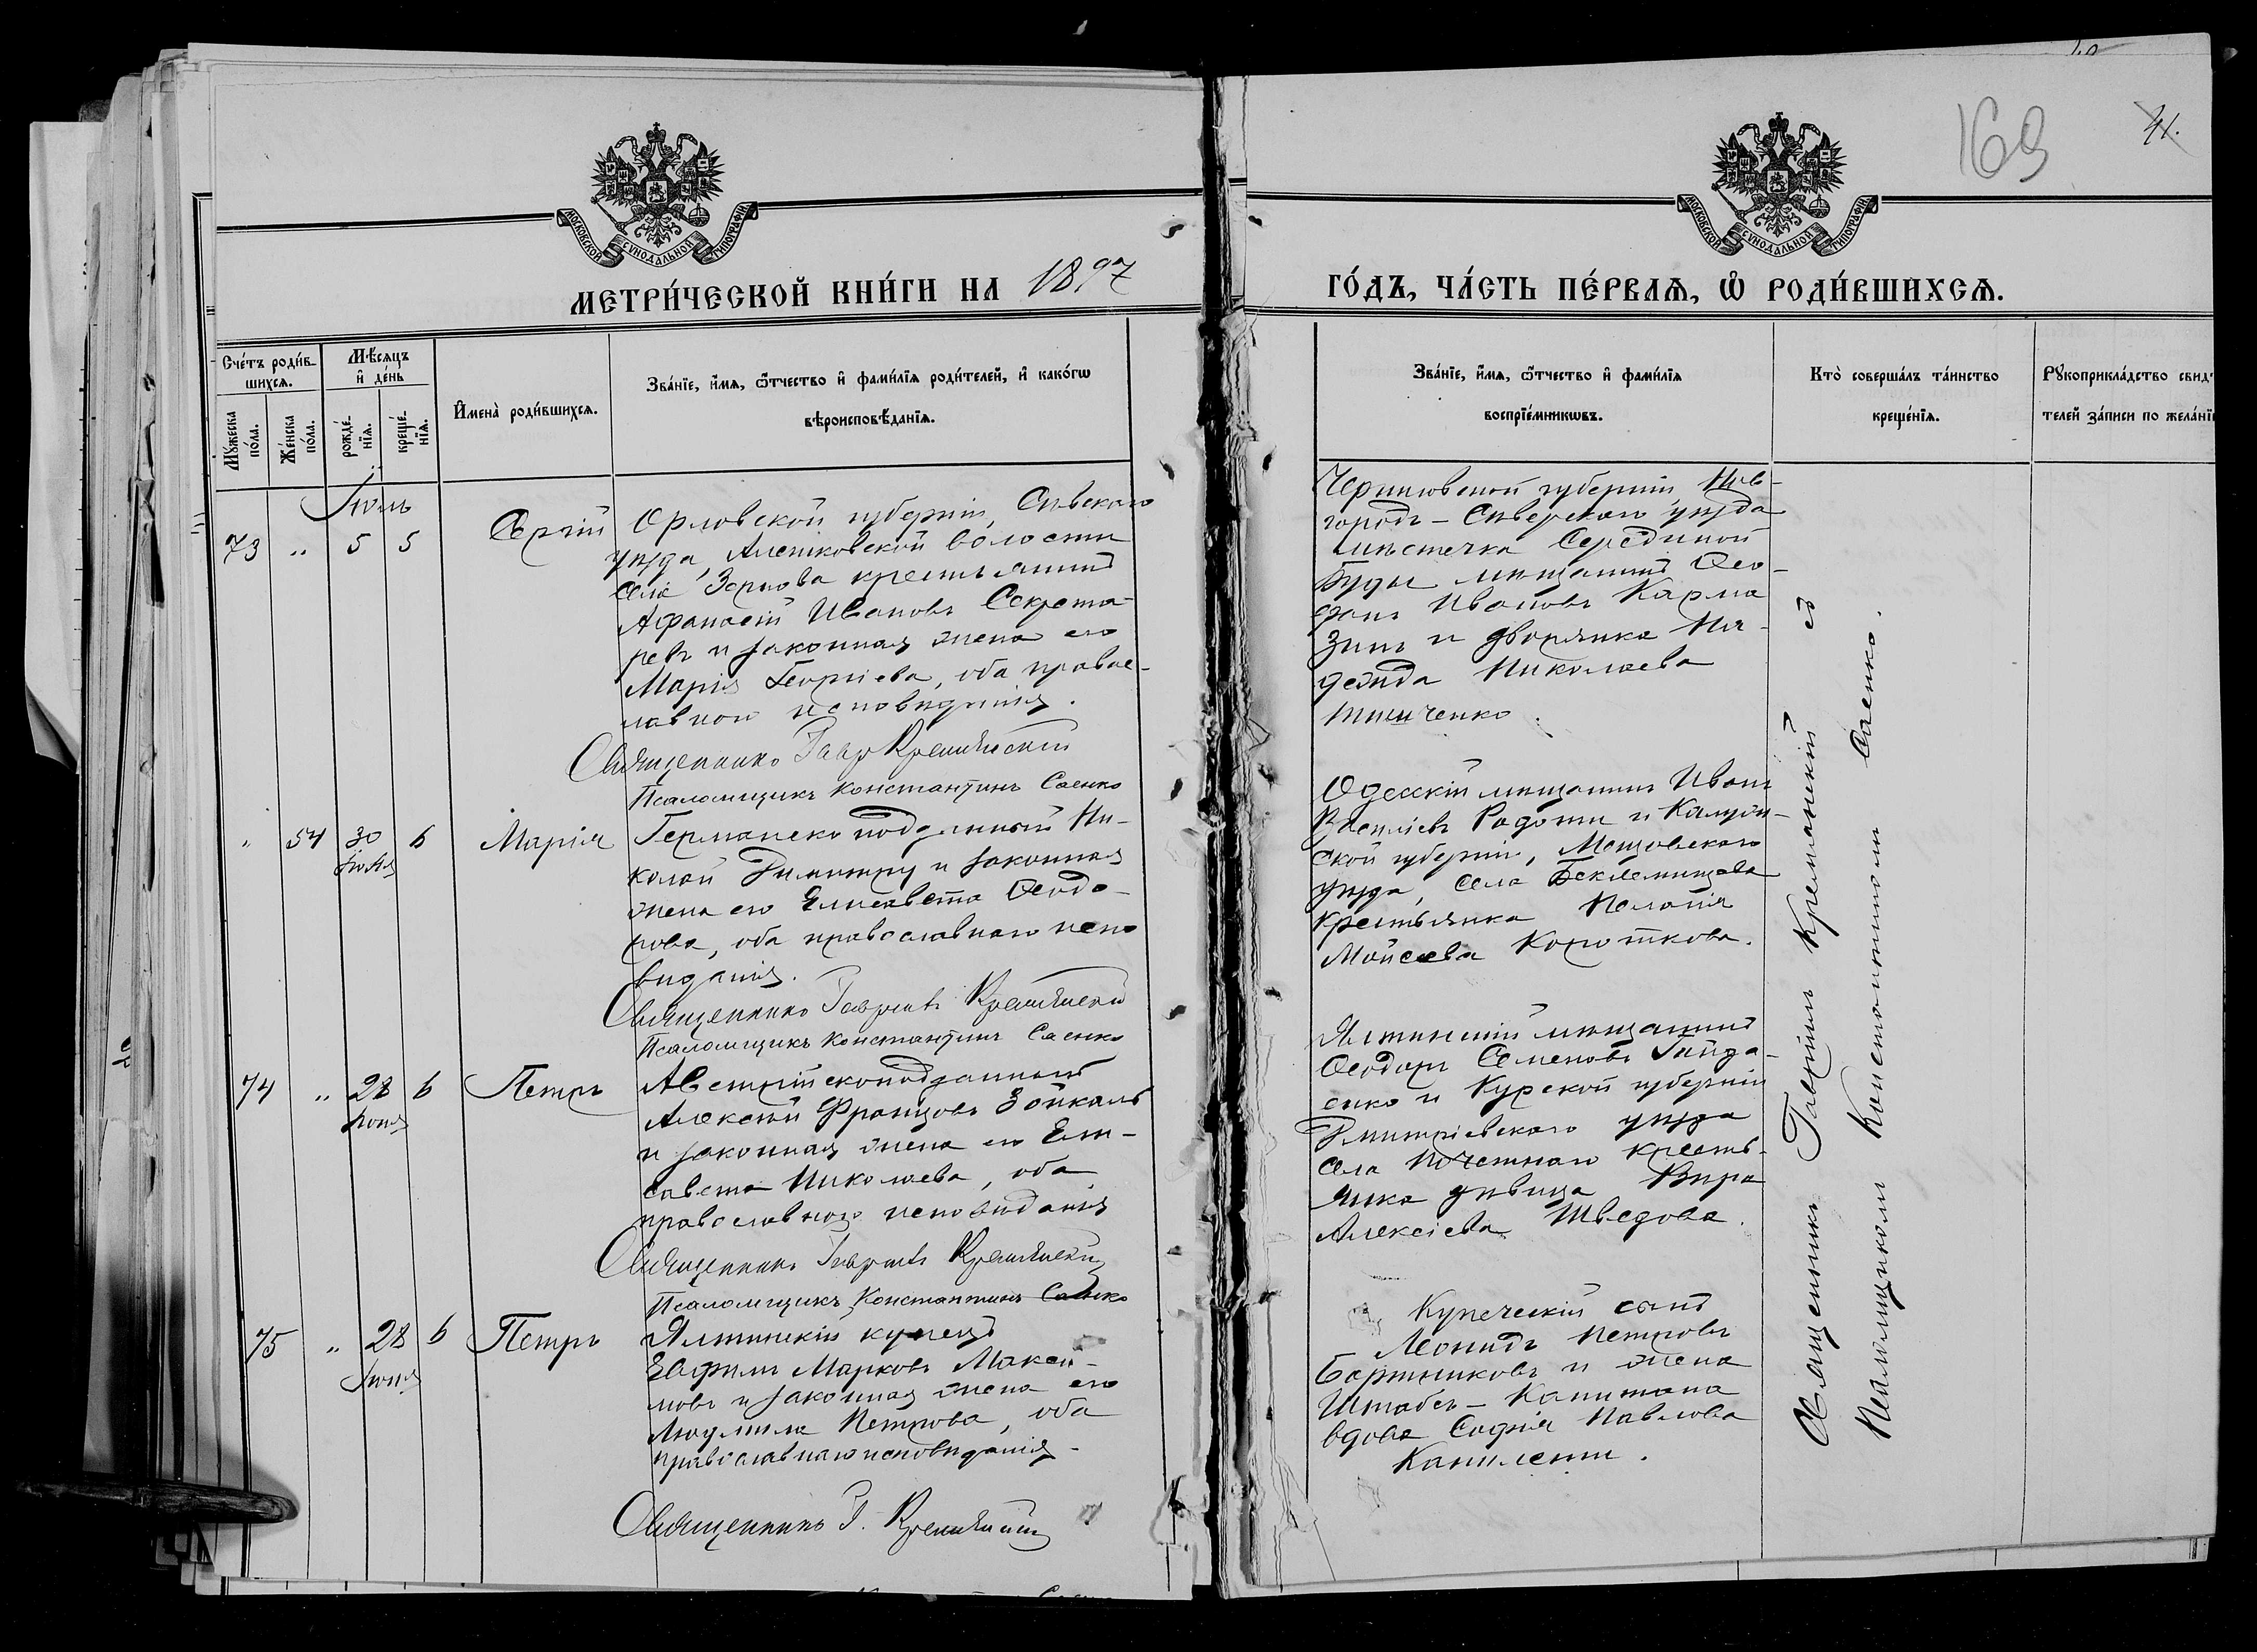 169
41.
МОСКОВСКОЙ СУНОДАЛЬНОЙ ТИПОГРАФІИ
МОСКОВСКОЙ СУНОДАЛЬНОЙ ТИПОГРАФІИ
МЕТРИ́ЧЕСКОЙ КНИ́ГИ НА 1897
ГО́ДЪ, ЧА́СТЬ ПЕ́РВАѦ, Ѡ҆ РОДИ́ВШИХСѦ.
Сче́тъ роди́в-
шихсѧ.
Мꙋ́жеска
по́ла.
Же́нска
по́ла.
Мѣ́сѧцъ
и҆ де́нь
рожде́-
нїѧ.
креще́-
нїѧ.
И҆мена̀ роди́вшихсѧ.
Зва́нїе, и҆́мѧ, ѻ҆́тчество и҆ фами́лїѧ роди́телей, и҆ како́гѡ
вѣроисповѣ́данїѧ.
Зва́нїе, и҆́мѧ, ѻ҆́тчество и҆ фами́лїѧ
воспрїе́мникѡвъ.
Кто̀ соверша́лъ та́инство
креще́нїѧ.
Рꙋкоприкла́дство свидѣ
телей за́писи по жела́нї
Іюль
73 " 5 5 Сергій
Орловской губерніи, Сѣвскаго
уѣзда, Алешковской волости
села Зернова крестьянинъ
Афанасій Ивановъ Секрета-
ревъ и законная жена его
Марія Георгіева, оба правос-
лавного исповѣданія.
Священникъ Гавр Кремянскій
Псаломщикъ Константинъ Саенко
Черниговской губерніи, Нов-
городъ-Сѣверскаго уѣзда
мѣстечка Середикой
Буды мѣщанинъ Ѳео-
Ивановъ Карма
зинъ и дворянка На-
дежда Николаева
" 54 30 6 Марія
Іюня
Германскоподданный Ни-
колай Димитру и законная
жена его Елисавета Ѳеодо-
рова, оба православнаго испо
вѣданія.
Священникъ Гавріилъ Кремянскій
Псаломщикъ Константинъ Саенко
Одесскій мѣщанинъ Иванъ
Василіевъ и Калуж-
ской губерніи, Мещовскаго
уѣзда, села Беклемищева
крестьянка Пелагія
Моисеева Короткова.
74 " 28 6 Петръ
Іюня
Австрійскоподданный
Алексѣй Францовъ Зойкалъ
и законная жена его Ели-
савета Николаева, оба
православнаго исповѣданія
Священникъ Гавріилъ Кремянскій
Псаломщикъ Константинъ Саенко
Ялтинскій мѣщанинъ
Ѳеодоръ Семеновъ Гайда-
енко и Курской губерніи
Дмитріевскаго уѣзда
села крестьь-
янка дѣвица Вѣра
Алексіева Шведова.
75 " 28 6 Петръ
Іюня
Ялтинскій купецъ
Евфимъ Марковъ Макси-
мовъ и законная жена его
Людмила Петрова, оба
православнаго исповѣданія
Священникъ Г. Кремянскій
Купеческій сынъ
Леонидъ Петровъ
Бортниковъ и жена
Штабсъ-Капитана
вдова Софія Павлова
Священникъ Гавріилъ Кремянскій съ
Псаломщикомъ Константиномъ Саенко.